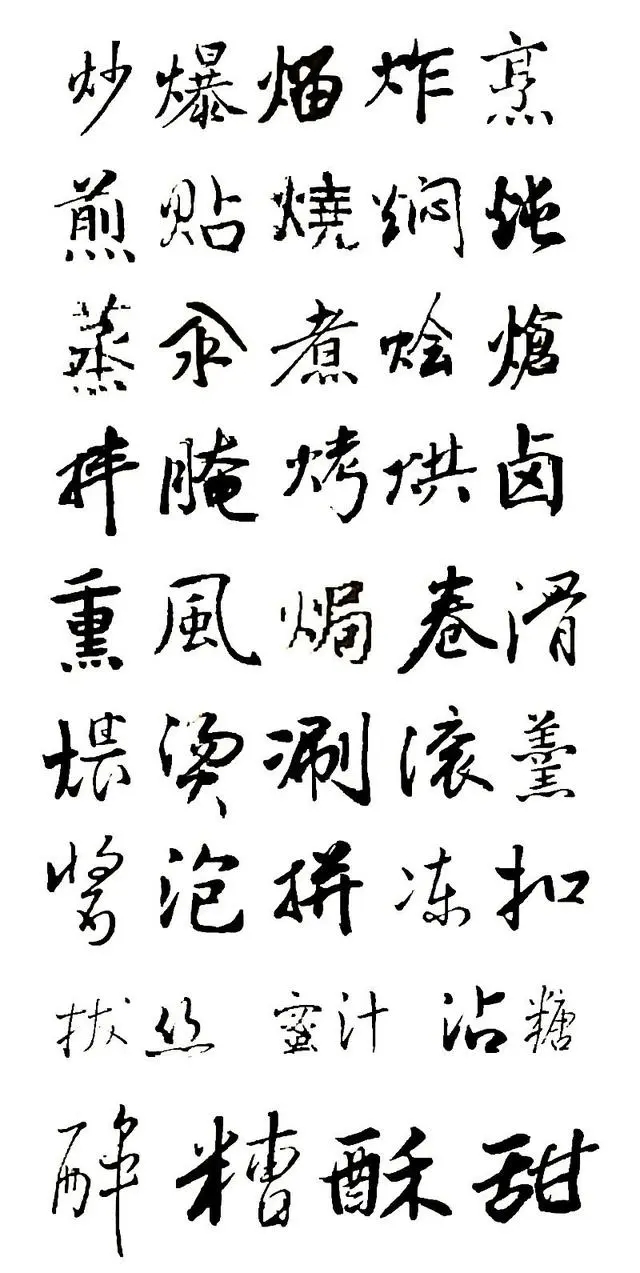 炒 爆 熘 炸 烹
煎 貼 燒 焖 炖
蒸 汆 煮 烩 熗
拌 腌 烤 烘 卤
熏 風 焗 卷 滑
煨 燙 涮 滚 羹
醬 泡 拼 冻 扣
拔丝 蜜汁 沾糖
醉 糟 酥 甜